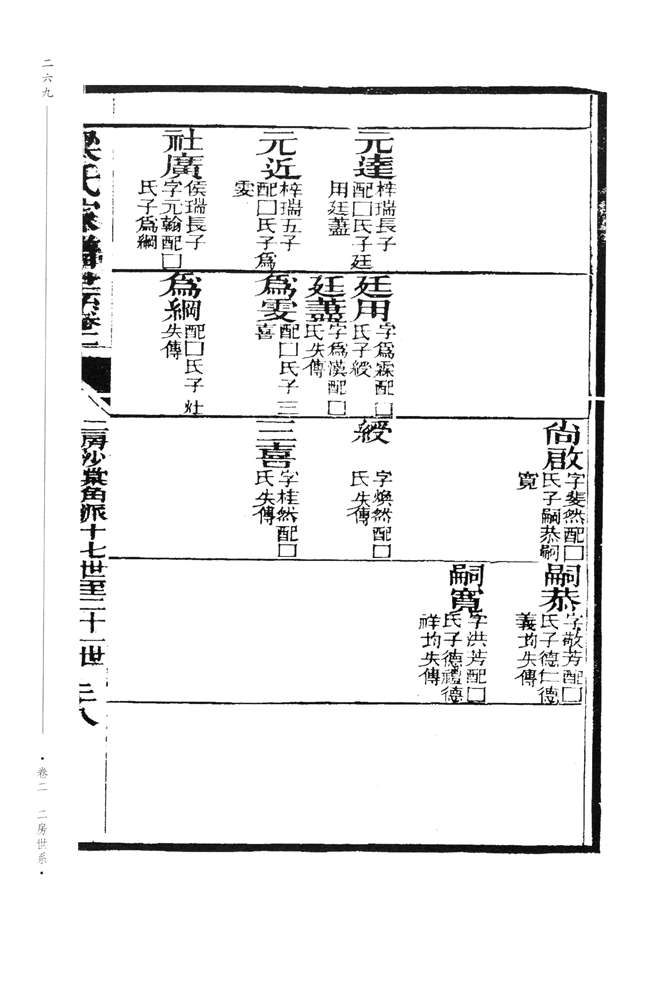 二六九
元達
梓瑞長子
配□氏子廷
用廷藎
元近
梓瑞五子
配□氏子爲
雯
社廣
侯瑞長子
字元翰配□
氏子爲綱
廷用
字爲霖配□
氏子綬
廷藎
字爲漢配□
氏失傳
爲雯
配□氏子三
喜
爲綱
配□氏子
失傳
尙啟
字斐然配□
氏子嗣恭嗣
寬
綬
字煥然配□
氏失傳
三喜
字桂然配□
氏失傳
嗣恭
字敬芳配□
氏子德仁德
義均失傳
嗣寬
字洪芳配□
氏子德禮德
祥均失傳
梁氏家譜世系卷二
二房沙棠角派十七世至二十一世
卷二 二房世系